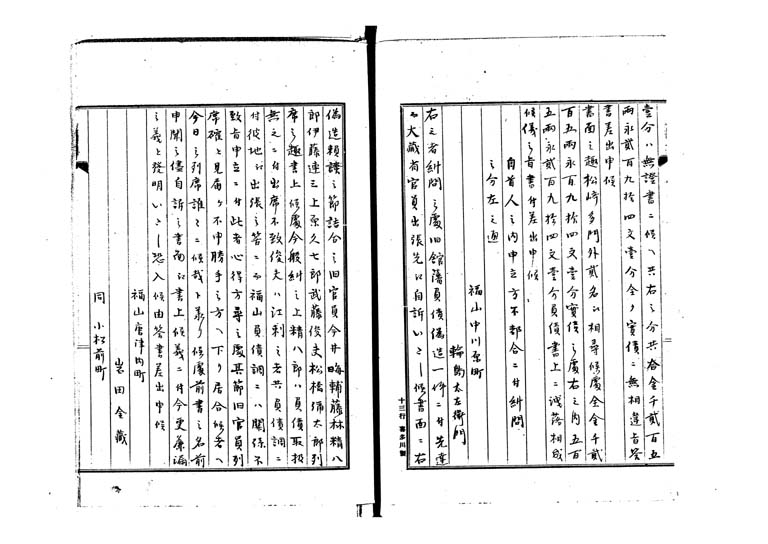 壹分ハ無證書ニ候ヘ共右之分共金千貳百五
両永貳百九拾四文壹分全ク實債ニ無相違旨答
書差出申候
書面之趣松﨑多門外貳名江相尋候處全金千貳
百五両永百九拾四文壹分實債之處右之内五百
五両永貳百九拾四文壹分負債書上ニ洩落相成
候儀之旨書付差出申候
自首人之内申立方不都合ニ付糾問
之分左之通
福山中川原町
輪島太左衛門
右之者糾問之處旧館藩負債偽造一件ニ付先達
而大藏省官員出張先江自訴いたし候書面ニ右
十三行 喜多川製
偽造頼談之節詰合之旧官員今井 藤林精八
郎伊藤連三上原久七郎武藤俊吏松橋弥太郎列
席之趣書上候處今般糾之上精八郎ハ負債取扱
無之ニ付出席不致俊吏ハ江刺之者共負債調ニ
付彼地江出張之答ニ而福山負債調ニハ関係不
致旨申立ニ付此者心得方尋之處其節旧官員列
席確と見留ケ不申勝手之方ヘ下り居合候者ヘ
今日之列席誰々ニ候哉ト承り候處前書之名前
申聞之儘自訴之書面江書上候義ニ付今更兼
之義と發明いたし恐入候由答書差出申候
福山唐津内町
岩田金藏
同 小松前町